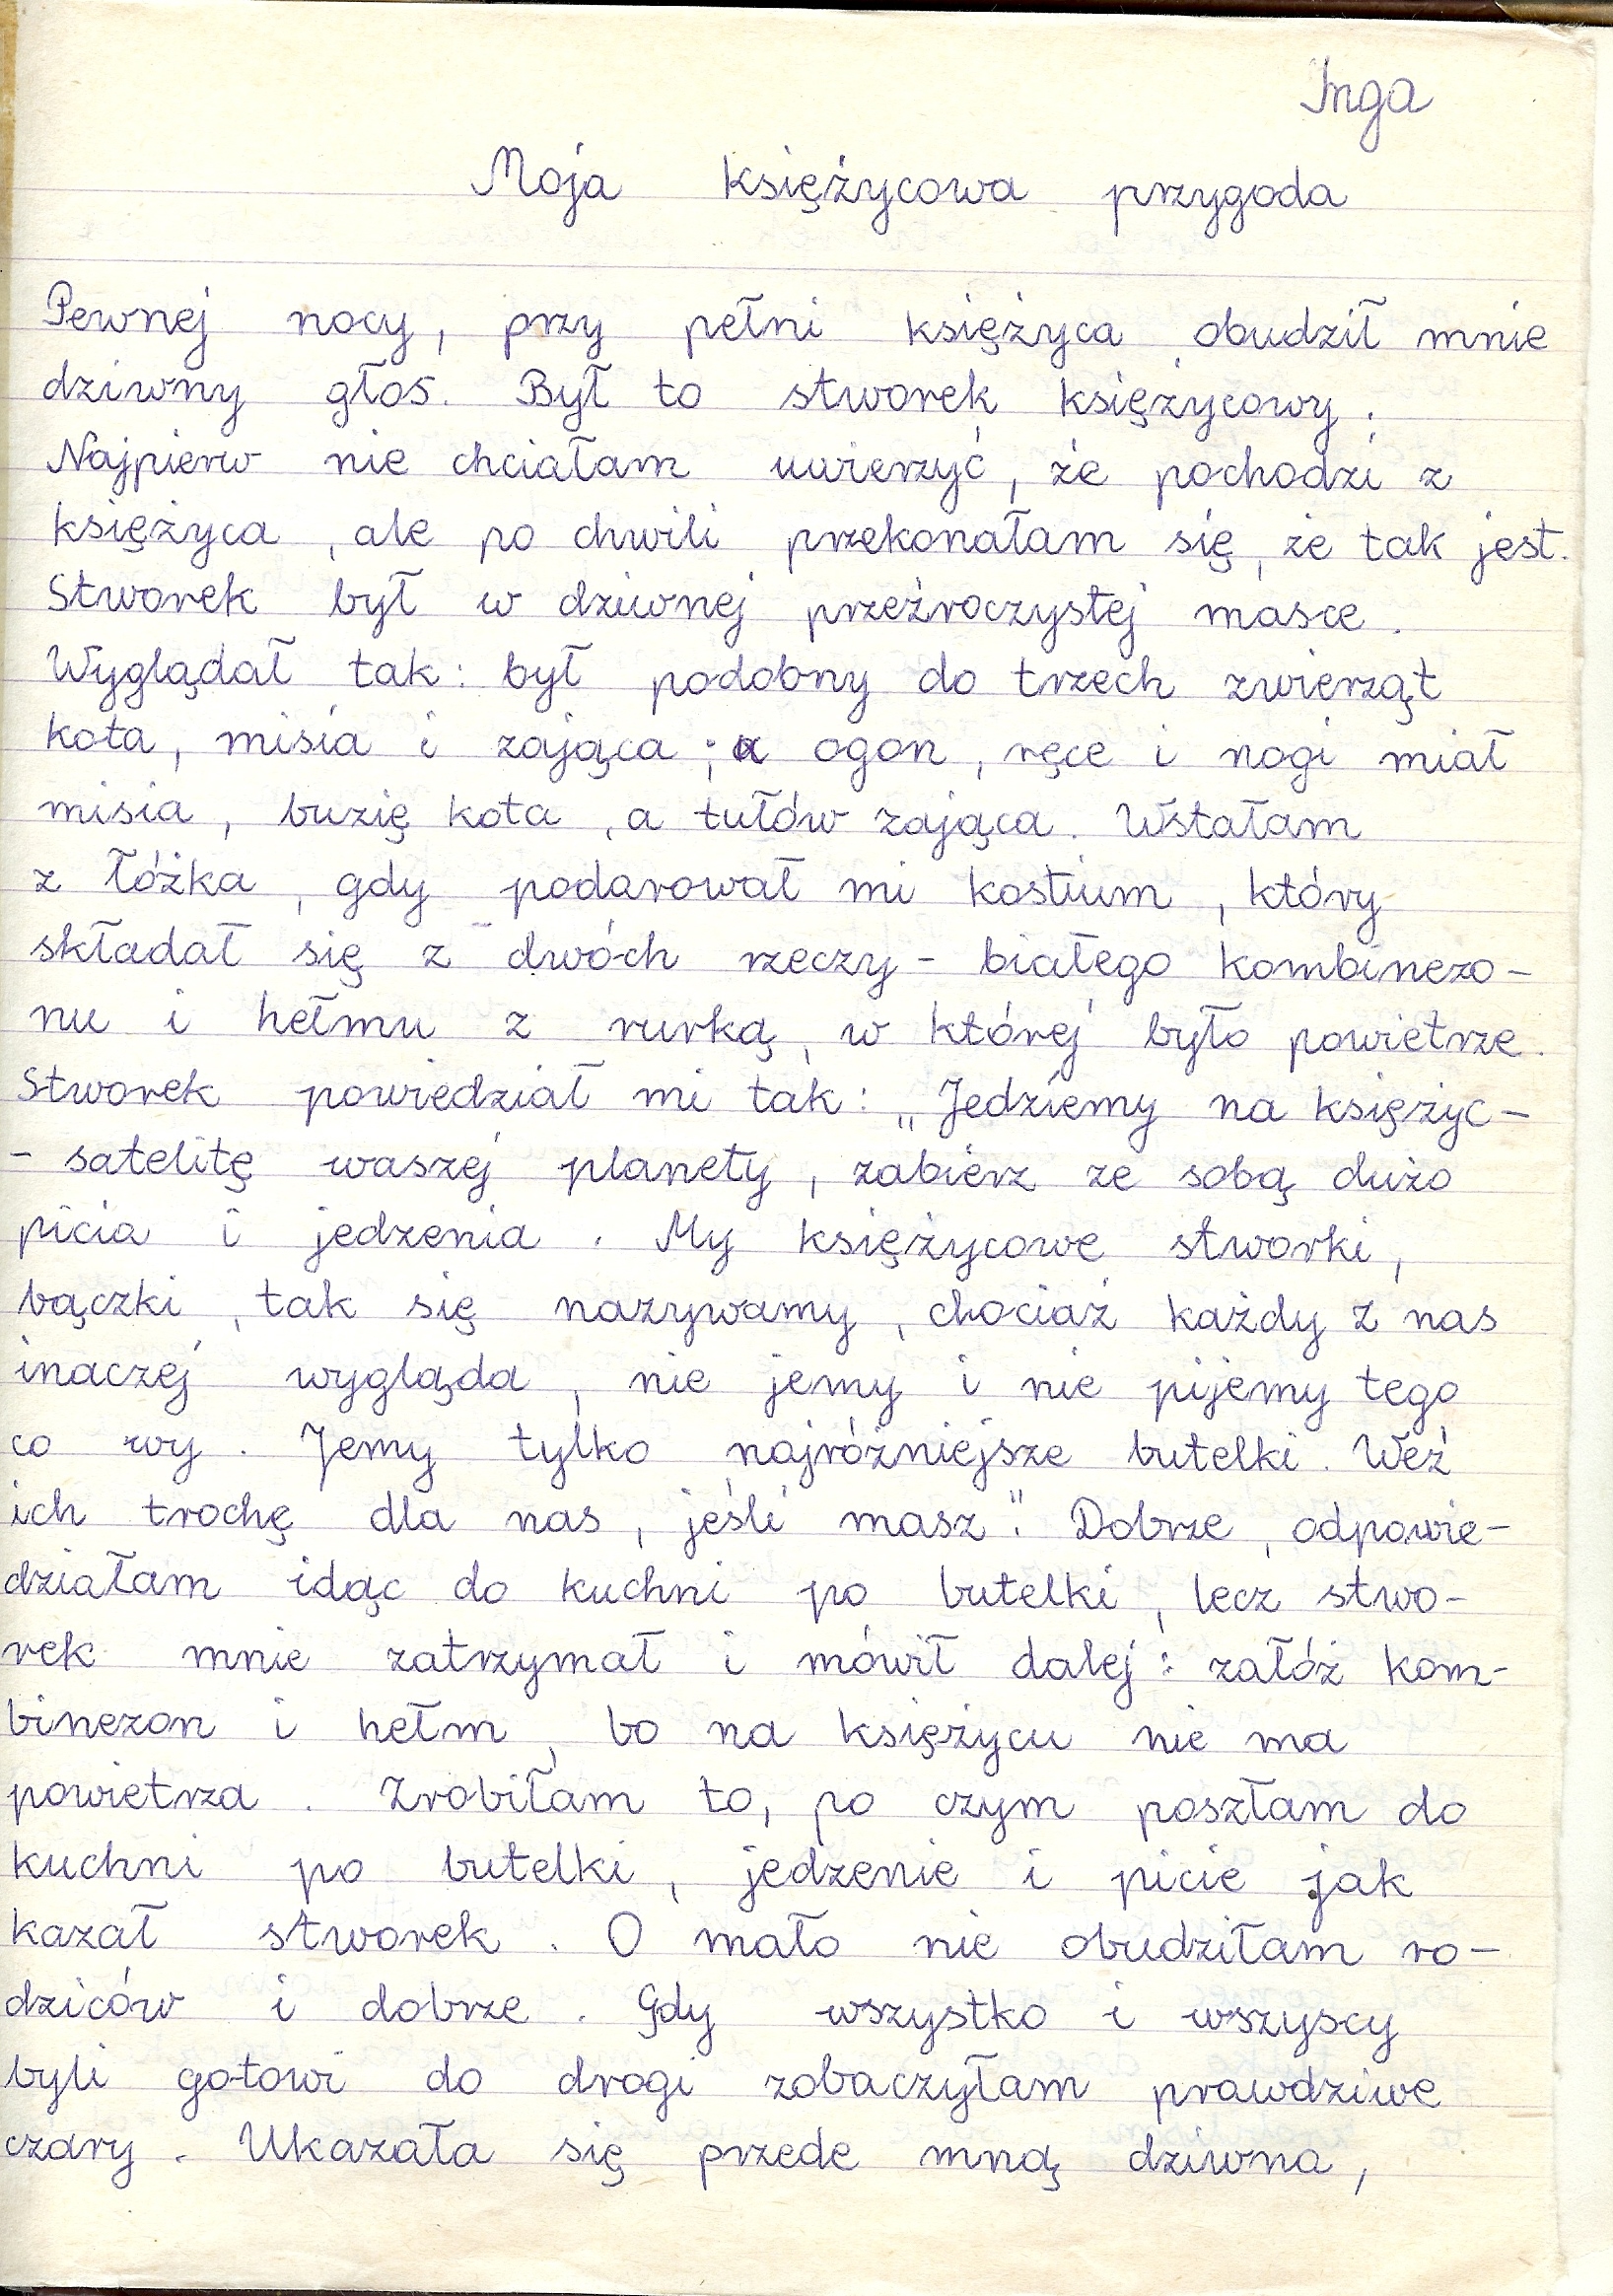 Inga
Moja księżycowa przygoda
Pewnej nocy, przy pełni księżyca obudził mnie
dziwny głos. Był to stworek księżycowy.
Najpierw nie chciałam uwierzyć, że pochodzi z
księżyca, ale po chwili przekonałam się, że tak jest.
Stworek był w dziwnej przeźroczystej masce.
Wyglądał tak: był podobny do trzech zwierząt
kota, misia i zająca; a ogon, ręce i nogi miał
misia, buzię kota, a tułów zająca. Wstałam
z łóżka, gdy podarował mi kostium, który
składał się z dwóch rzeczy - białego kombinezo-
nu i hełmu z rurką, w której było powietrze.
Stworek powiedział mi tak: „Jedziemy na księżyc -
- satelitę waszej planety, zabierz ze sobą dużo
picia i jedzenia. My księżycowe stworki,
bączki, tak się nazywamy, chociaż każdy z nas
inaczej wygląda, nie jemy i nie pijemy tego
co wy. Jemy tylko najróżniejsze butelki. Weź
ich trochę dla nas, jeśli masz". Dobrze, odpowie-
działam idąc do kuchni po butelki, lecz stwo-
rek mnie zatrzymał i mówił dalej: załóż kom-
binezon i hełm, bo na księżycu nie ma
powietrza. Zrobiłam to, po czym poszłam do
kuchni po butelki, jedzenie i picie jak
kazał stworek. O mało nie obudziłam ro-
dziców i dobrze. Gdy wszystko i wszyscy
byli gotowi do drogi zobaczyłam prawdziwe
czary. Ukazała się przede mną dziwna,